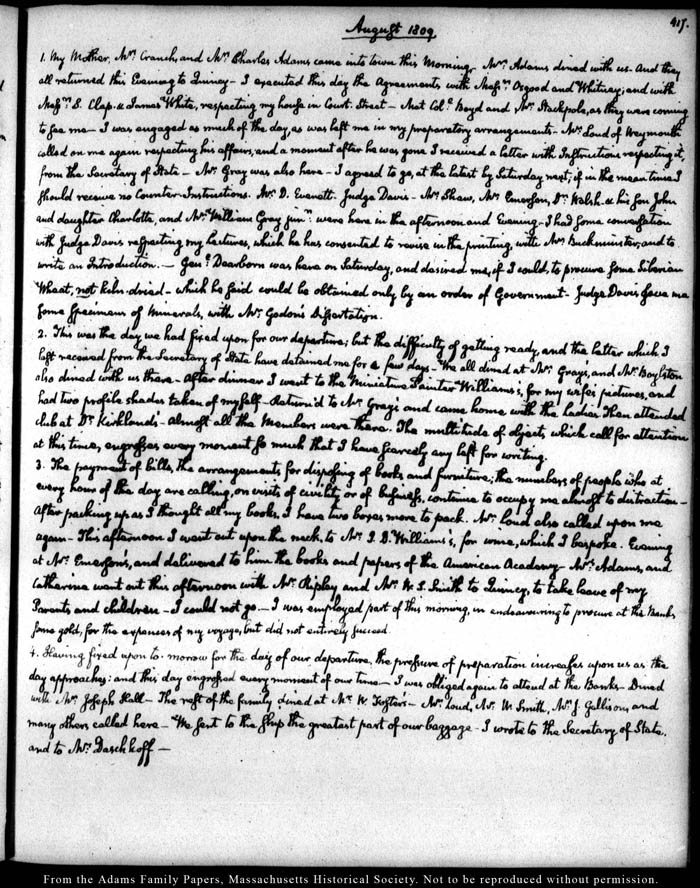 417.
August 1809
1. My Mother, Mrs. Cranch, and Mrs. Charles Adams came into town this Morning. Mrs. Adams dined with us. And they
all returned this Evening to Quincy — I executed this day the Agreements with Messrs. Osgood and Whitney; and with
Messrs. S. Clap & James White, respecting my house in Court Street — Met Coll. Boyd and Mr. Stackpole, as they were coming
to see me — I was engaged as much of the day, as was left me in my preparatory arrangements — Mr. Loud of Weymouth
called on me again respecting his affairs, and a moment after he was gone I received a letter with Instructions respecting it,
from the Secretary of State — Mr. Gray was also here — I agreed to go, at the latest by Saturday next, if in the mean time I
should receive no Counter-Instructions. Mr. D. Everett. Judge Davis — Mr. Shaw, Mr. Emerson, Dr. Welsh & his son John
and daughter Charlotte, and Mr. William Gray junr. were here in the afternoon and Evening — I had some conversation
with Judge Davis respecting my Lectures, which he has consented to revise in the printing, with Mr. Buckminster, and to
write an Introduction. — Genl. Dearborn was here on Saturday, and desired me, if I could, to procure some Siberian
Wheat, not kiln-dried — which he said could be obtained only by an order of Government — Judge Davis gave me
some specimens of Minerals, with Mr. Godon's Dissertation.
2. This was the day we had fixed upon for our departure; but the difficulty of getting ready, and the letter which I
last received from the Secretary of State have detained me for a few days — We all dined at Mr. Gray's, and Mr. Boylston
also dined with us there — After dinner I went to the Miniature Painter Williams's, for my wife's pictures, and
had two profile shades taken of myself — Return'd to Mr. Gray's and came home with the ladies. Then attended
club at Dr. Kirkland's — almost all the Members were there. The multitude of objects, which call for attention
at this time, engrosses every moment so much that I have scarcely any left for writing.
3. The payment of bills, the arrangements for disposing of books and furniture, the numbers of people who at
every hour of the day are calling, on visits of civility, or of business, continue to occupy me almost to distraction —
After packing up as I thought all my books, I have two boxes more to pack. Mr. Loud also called upon me
again — This afternoon I went out upon the neck, to Mr. J. D. Williams's, for wine, which I bespoke. Evening
at Mr. Emerson's, and delivered to him the books and papers of the American Academy — Mrs. Adams, and
Catherine went out this afternoon with Mr. Ripley and Mr. W. S. Smith to Quincy, to take leave of my
Parents and children — I could not go. — I was employed part of this morning, in endeavouring to procure at the Banks
some gold, for the expenses of my voyage, but did not entirely succeed.
4. Having fixed upon to-morrow for the day of our departure, the pressure of preparation increases upon us as the
day approaches: and this day engrossed every moment of our time — I was obliged again to attend at the Banks — Dined
with Mr. Joseph Hall — The rest of the family dined at Mr. W. Foster's — Mr. Loud, Mr. W. Smith, Mr. J. Gallison, and
many others called here — We sent to the ship the greatest part of our baggage — I wrote to the Secretary of State,
and to Mr. Daschkoff —
From the Adams Family Papers, Massachusetts Historical Society. Not to be reproduced without permission.